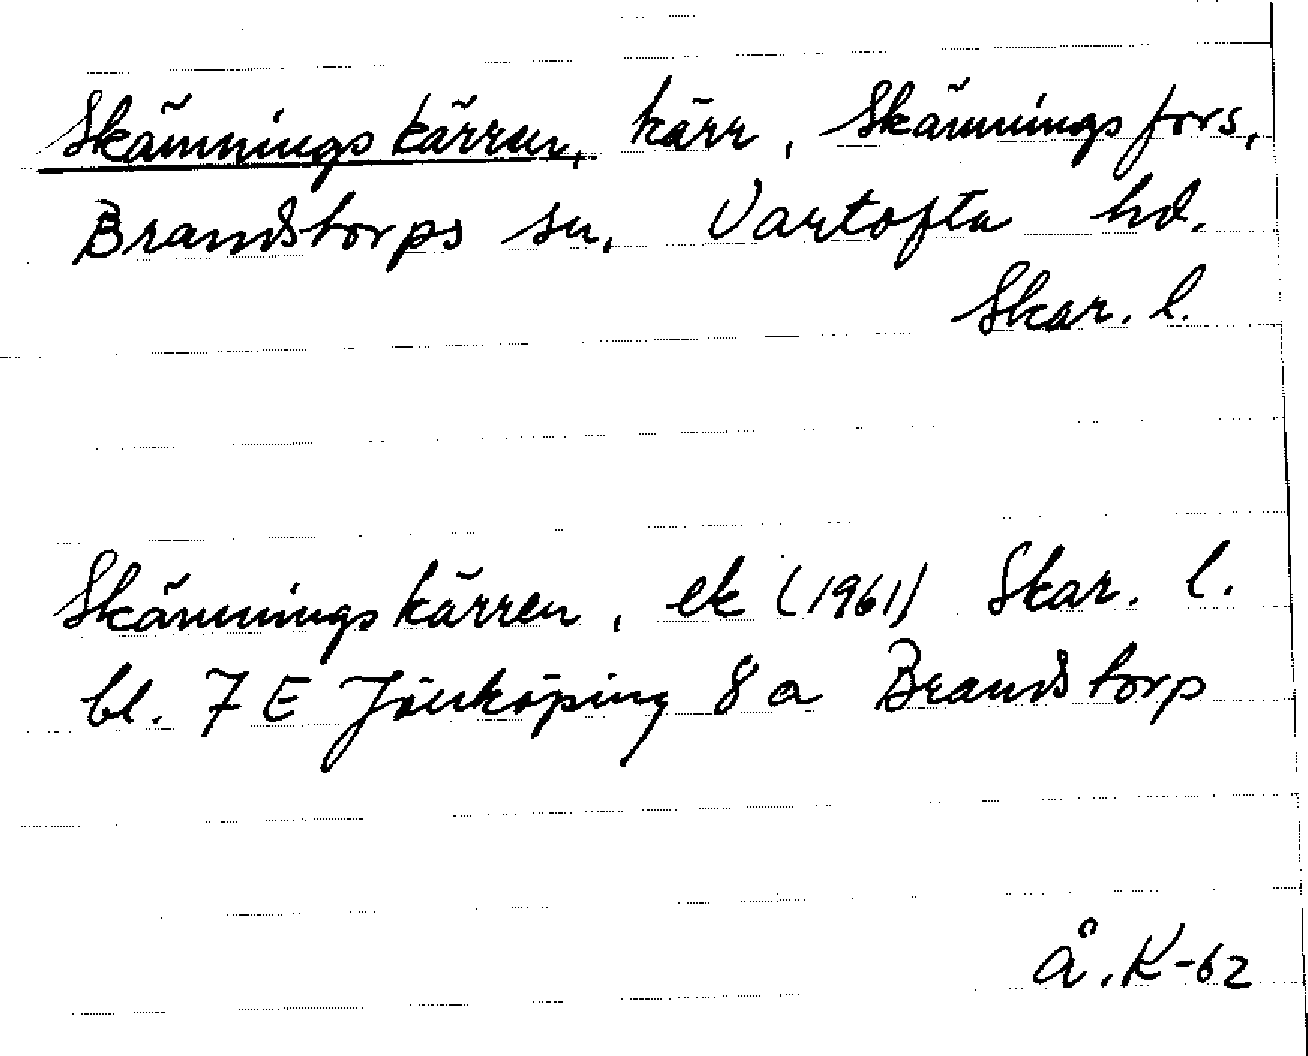 Skämningskärren, kärr, Skämningsfors,
Brandstorps sn. Vartofta hd.
Skar. l.
Skämningskärren, ek (1961) Skar. l.
bl. 7 E Jönköping 8 a Brandstorp
Å.K-62